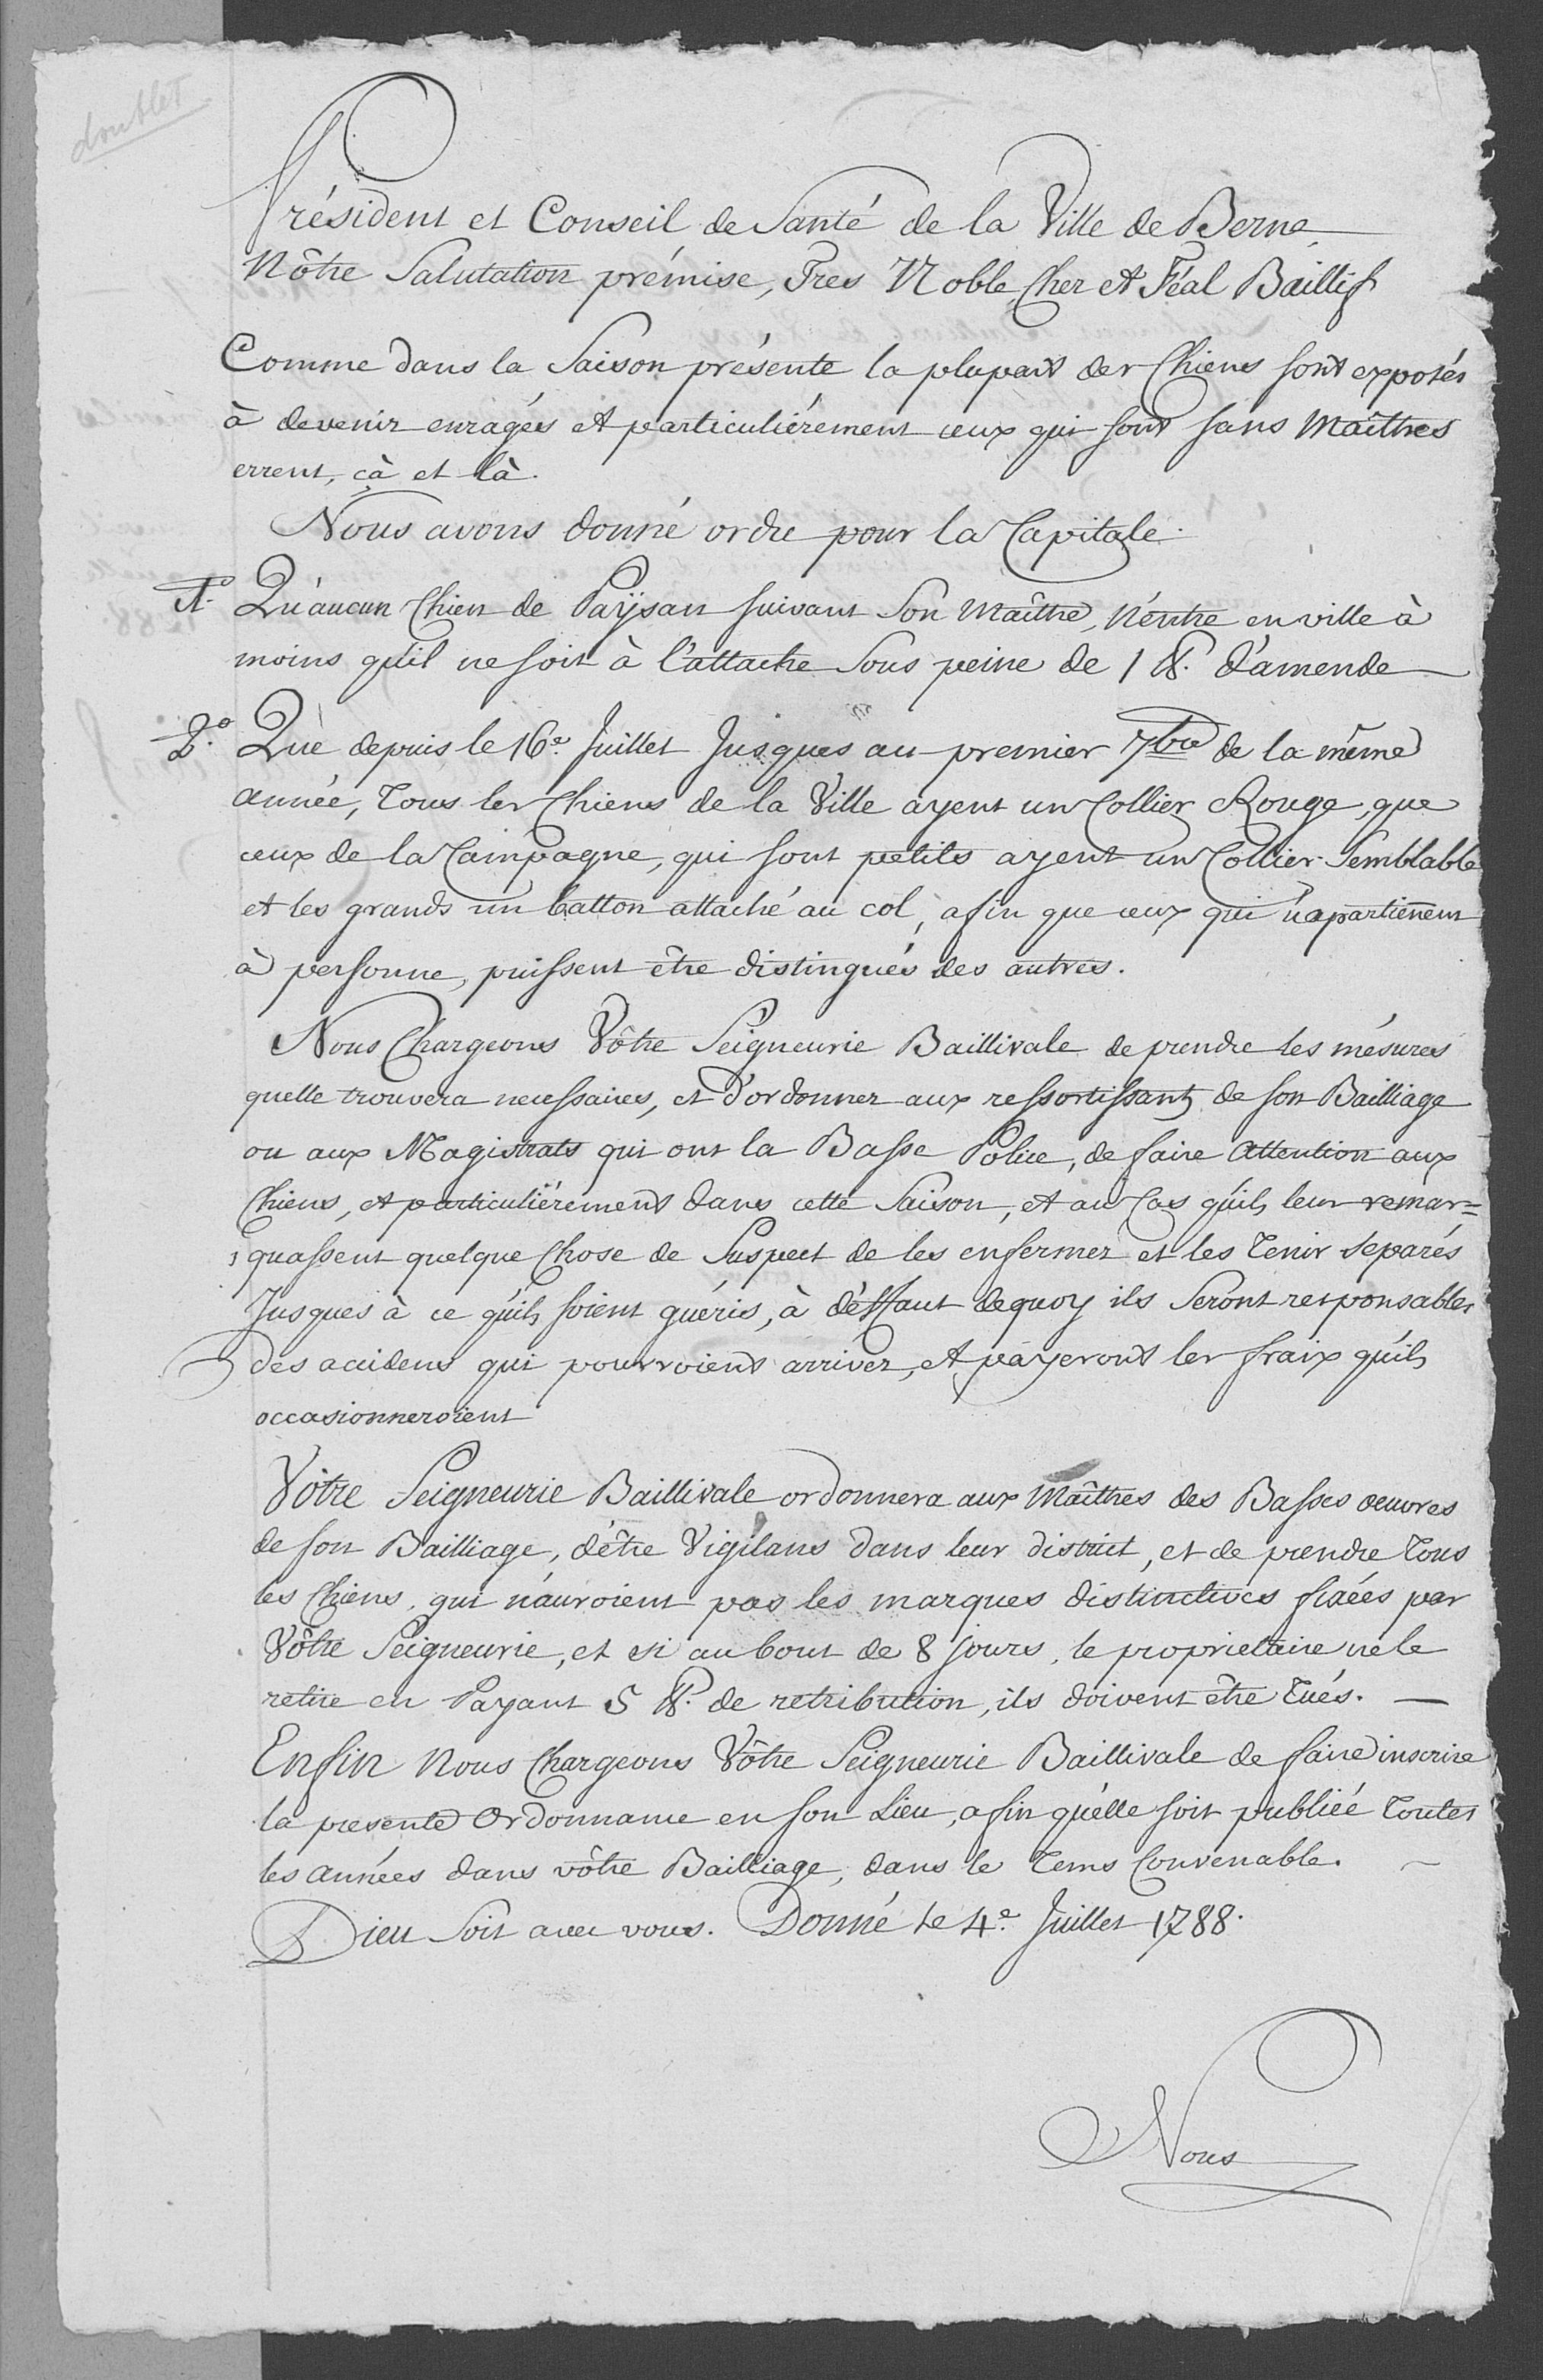 doublet
Président et Conseil de Santé de la Ville de Berne
Nôtre Salutation prémise, Tres Noble Cher et Féal Baillif
Comme dans la Saison présente la plupart des Chiens sont exposés
à devenir enragés et particuliérement ceux qui sont sans Maîtres
errent, çà et là.
Nous avons donné ordre pour la Capitale.
1° Qu'aucun Chien de Paÿsan suivant Son Maître, n'entre en ville à
moins qu'il ne soit à l'attache Sous peine de 1 ℔. d'amende
2° Que depuis le 16e. Juillet Jusques au premier 7bre de la même
année, Tous les Chiens de la Ville ayent un Collier Rouge, que
ceux de la Campagne, qui sont petits ayent un Collier Semblable
et les grands un batton attaché au col, afin que ceux qui n'apartiènent
à personne, puissent être distingués des autres.
Nous Chargeons Vôtre Seigneurie Baillivale de prendre les mésures
quelle trouvera necessaires, et d'ordonner aux ressortissants de son Bailliage
ou aux Magistrats qui ont la Basse Police, de faire attention aux
Chiens, et particuliérement dans cette Saison, et au Cas qu'ils leur remar=
quassent quelque Chose de Suspect de les enfermer et les Tenir séparés
Jusques à ce qu'ils soient guéris, à déffaut dequoy ils Seront responsables
des accidens qui pourroient arriver, et payeront les fraix qu'ils
occasionneroient
Vôtre Seigneurie Baillivale ordonnera aux Maîtres des Basses oeuvres
de son Bailliage, d'être Vigilans dans leur district, et de prendre Tous
les Chiens, qui n'auroient pas les marques distinctives fixées par
Vôtre Seigneurie, et si au bout de 8 jours, le proprietaire ne le
retire en Payant 5 ℔. de retribution, ils doivent être Tués. —
Enfin Nous Chargeons Vôtre Seigneurie Baillivale de faire inscrire
la presente Ordonnance en son Lieu, afin qu'elle soit publiée Toutes
les années dans vôtre Bailliage, dans le Tems Convenable. ~
Dieu Soit avec vous. Donné le 4e. Juillet 1788.
Nous